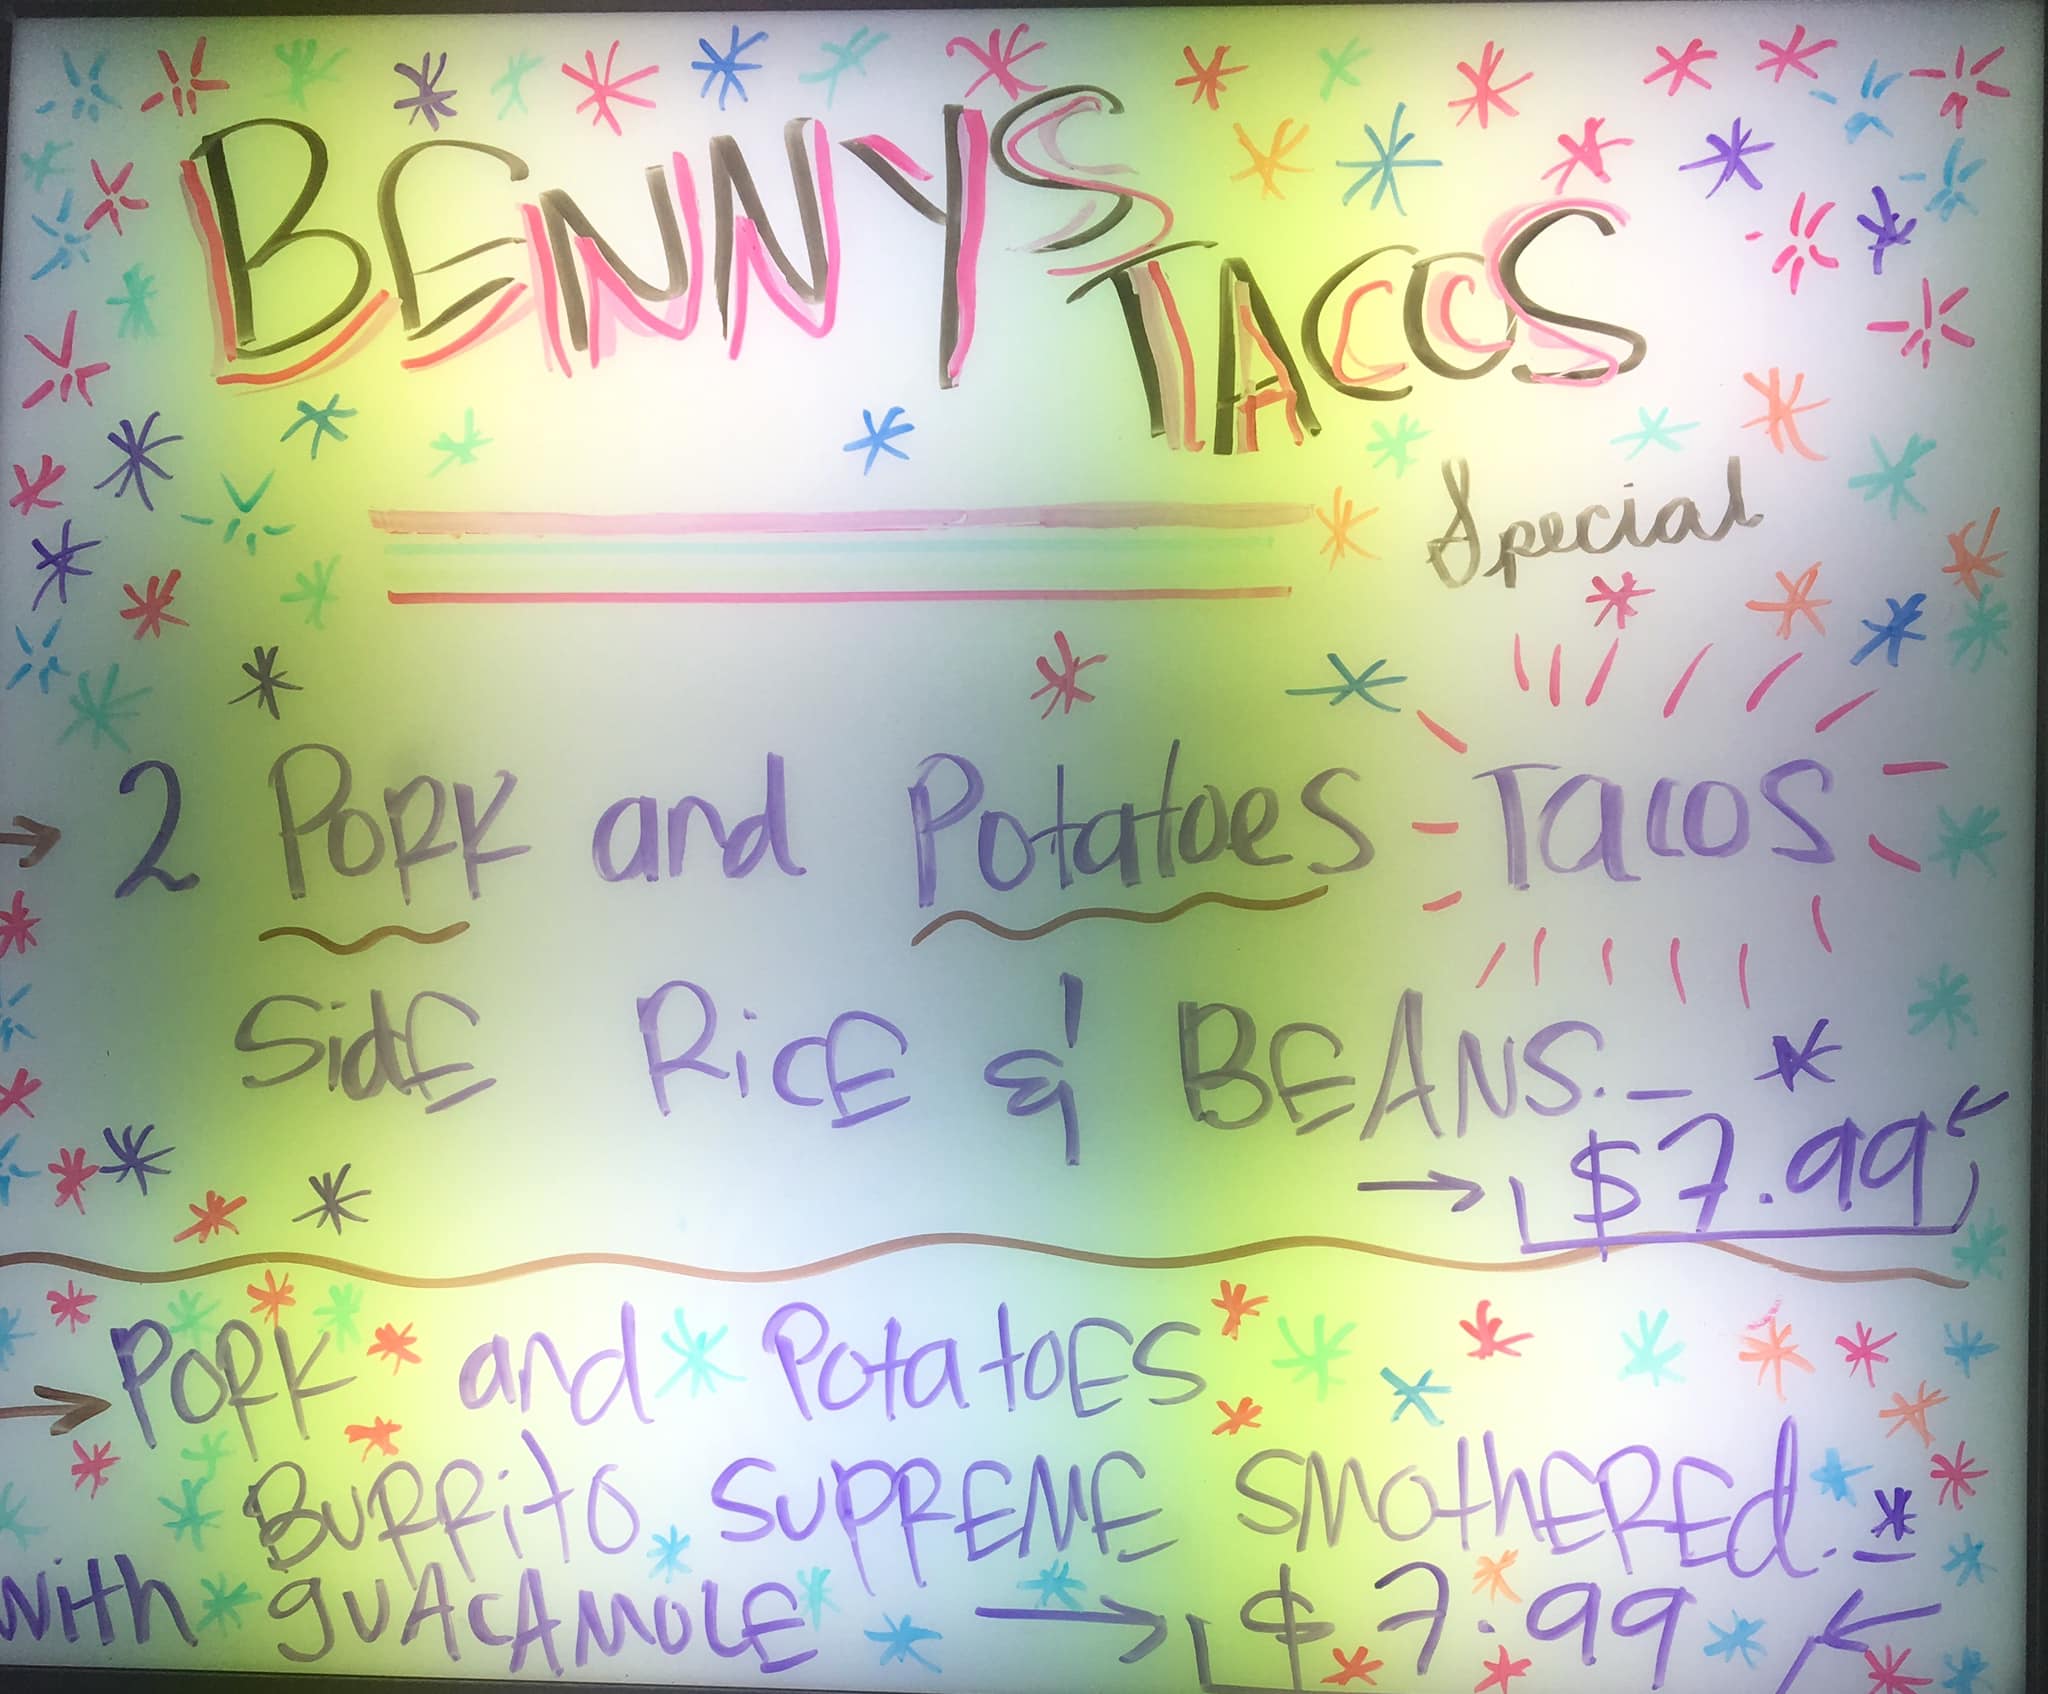 BENNYS
TACOS
Special
2 PORK and Potatoes TACOS
SidE RicE & BEANS.
$7.99
PORK and PotatoES
BURRito SUPREME SMOthEREd.
with guACAMOLE $7.99